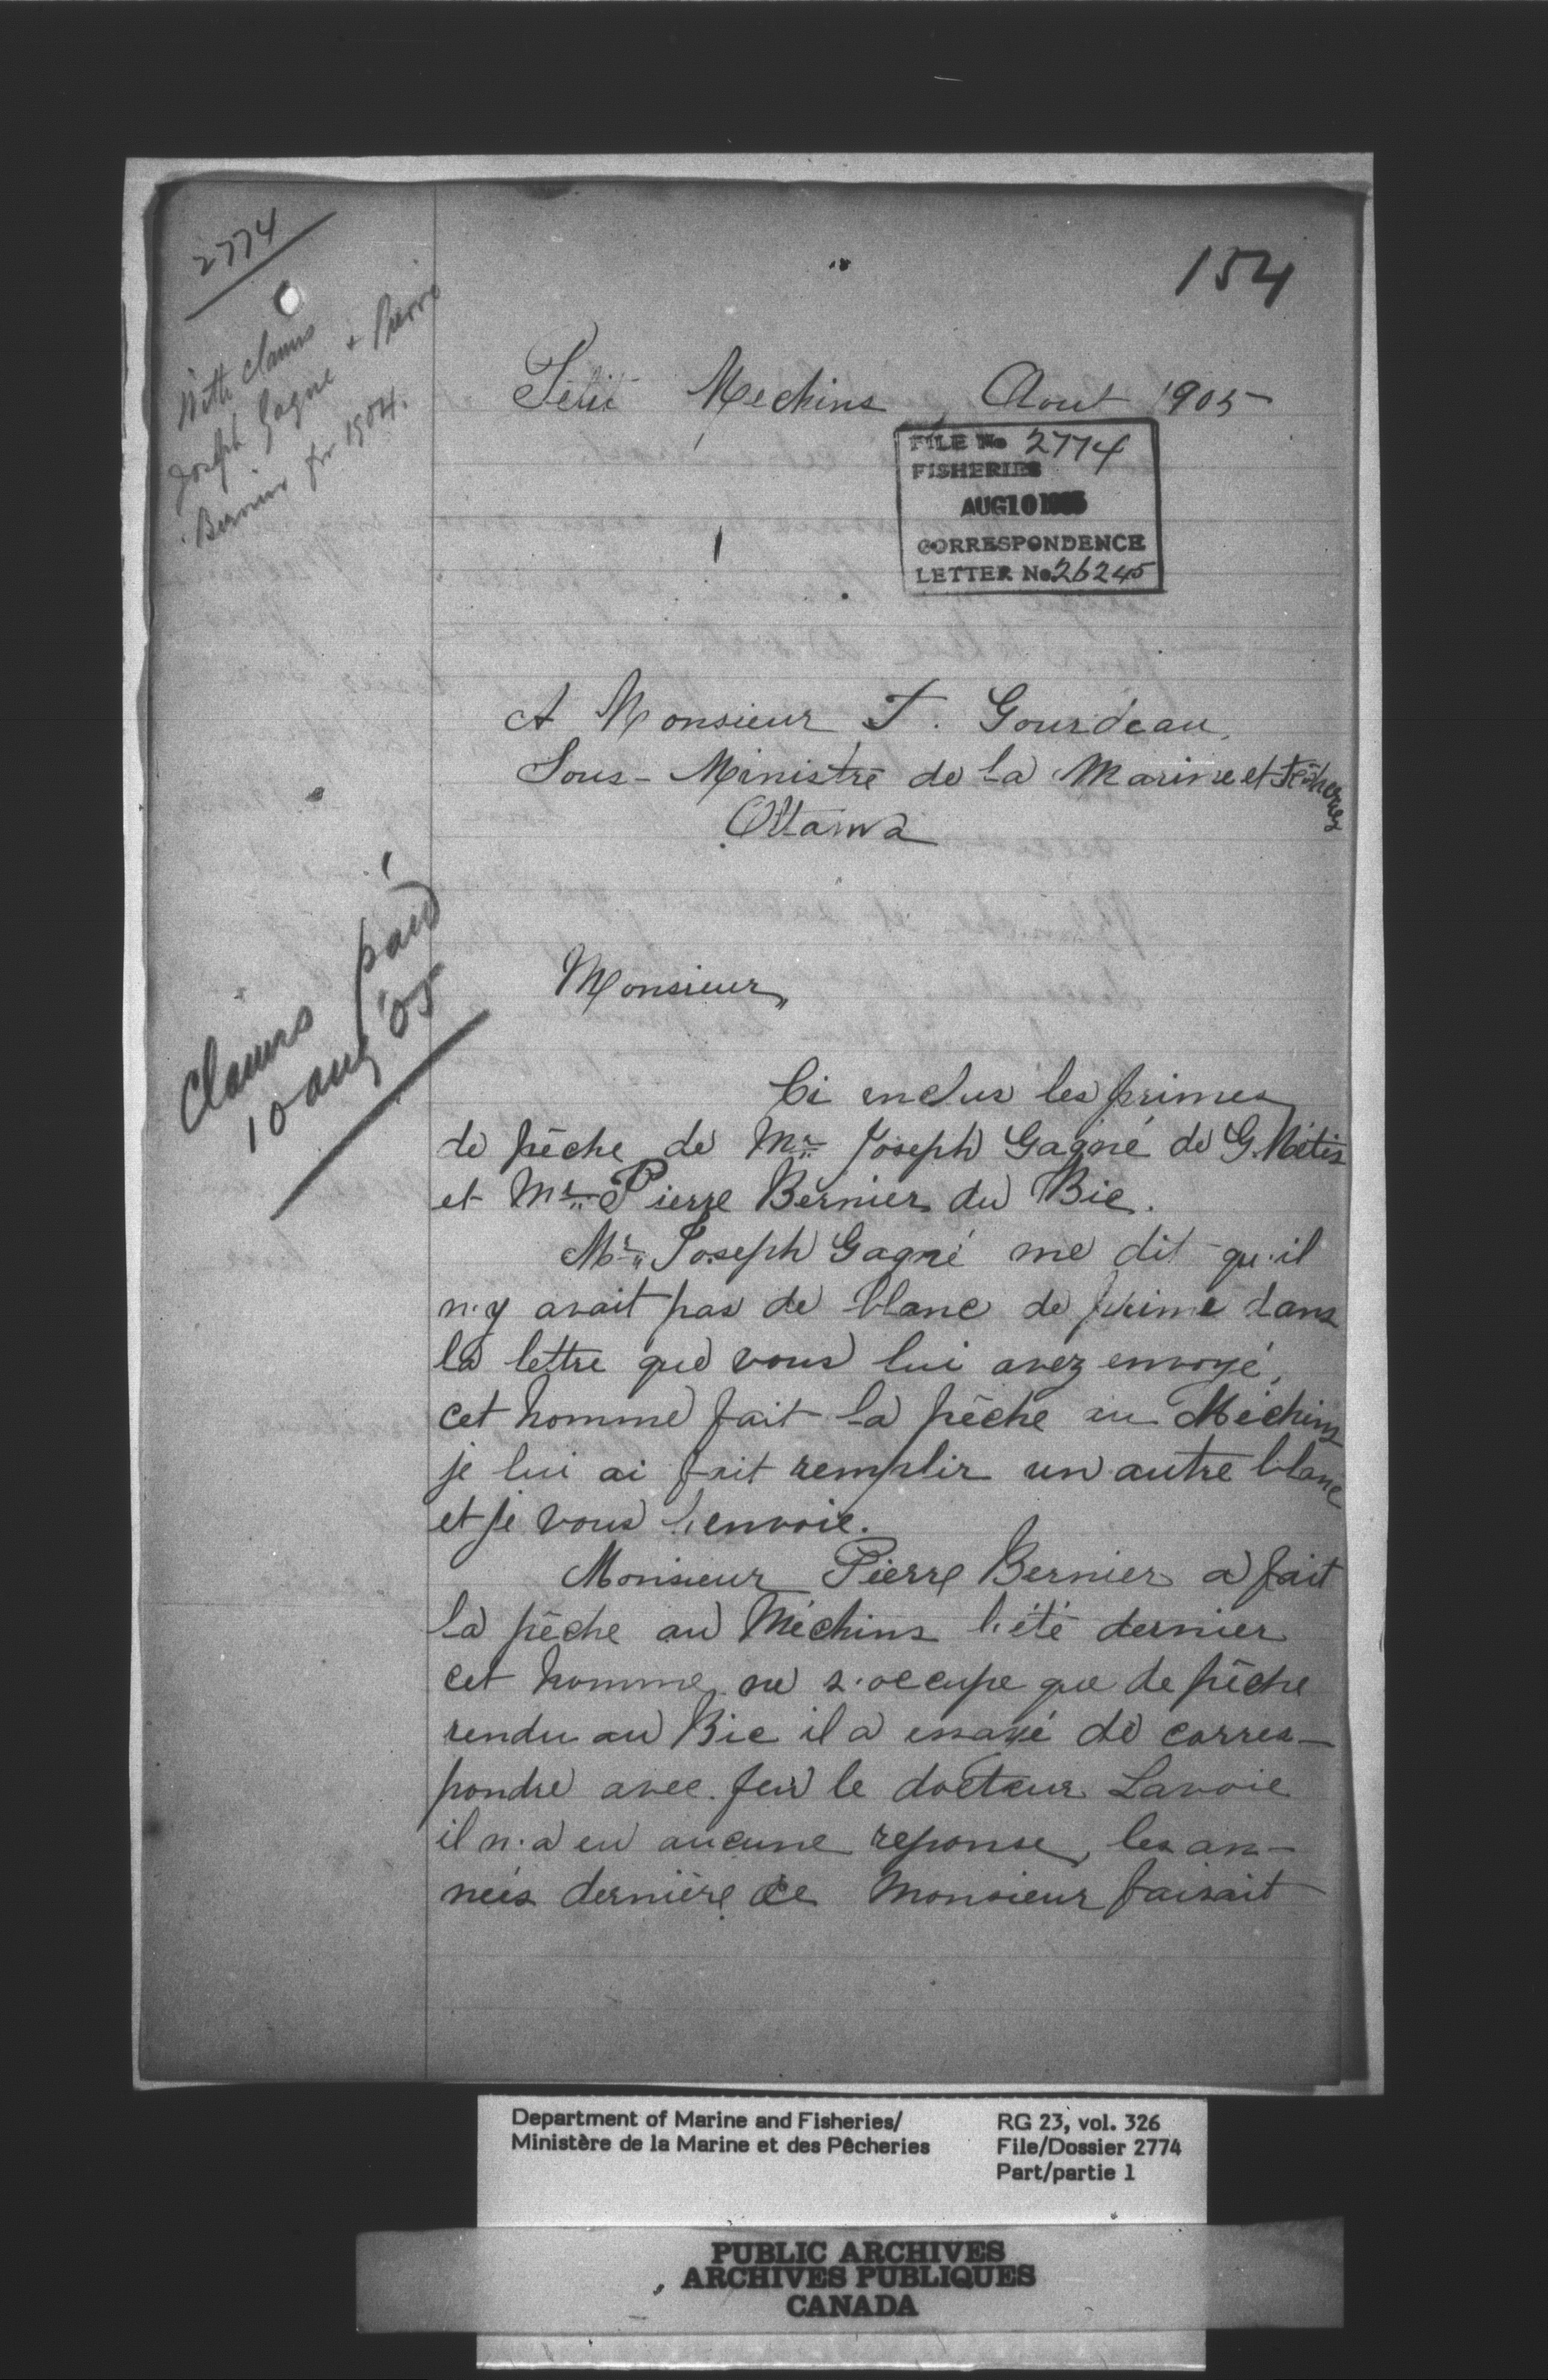 2774
154
With claims
Joseph Gagne + Pierre
Bernier for 1904.
Petit Mechins, Aout 1905
FILE No 2774
FISHERIES
AUG 10 1905
CORRESPONDENCE
LETTER No. 26245
A Monsieur F. Gourdeau,
Sous-Ministre de la Marine et Pêcheries
Ottawa
Claims paid
10 aug '05
Monsieur,
Ci enclus les primes
de pêche de Mr. Joseph Gagné de G. Métis
et Mr. Pierre Bernier du Bic.
Mr. Joseph Gagné me dit qu'il
n'y avait pas de blanc de prime dans
la lettre que vous lui avez envoyé,
cet homme fait la pêche au Méchins
je lui ai fait remplir un autre blanc
et je vous l'envoie.
Monsieur Pierre Bernier a fait
la pêche au Méchins l'été dernier
cet homme ne s'occupe que de pêche
rendu au Bic il a essayé de corres-
pondre avec feu le docteur Lavoie
il n'a eu aucune reponse, les an-
neés dernière ce Monsieur faisait
Department of Marine and Fisheries/
Ministère de la Marine et des Pêcheries
RG 23, vol. 326
File/Dossier 2774
Part/partie 1
PUBLIC ARCHIVES
ARCHIVES PUBLIQUES
CANADA